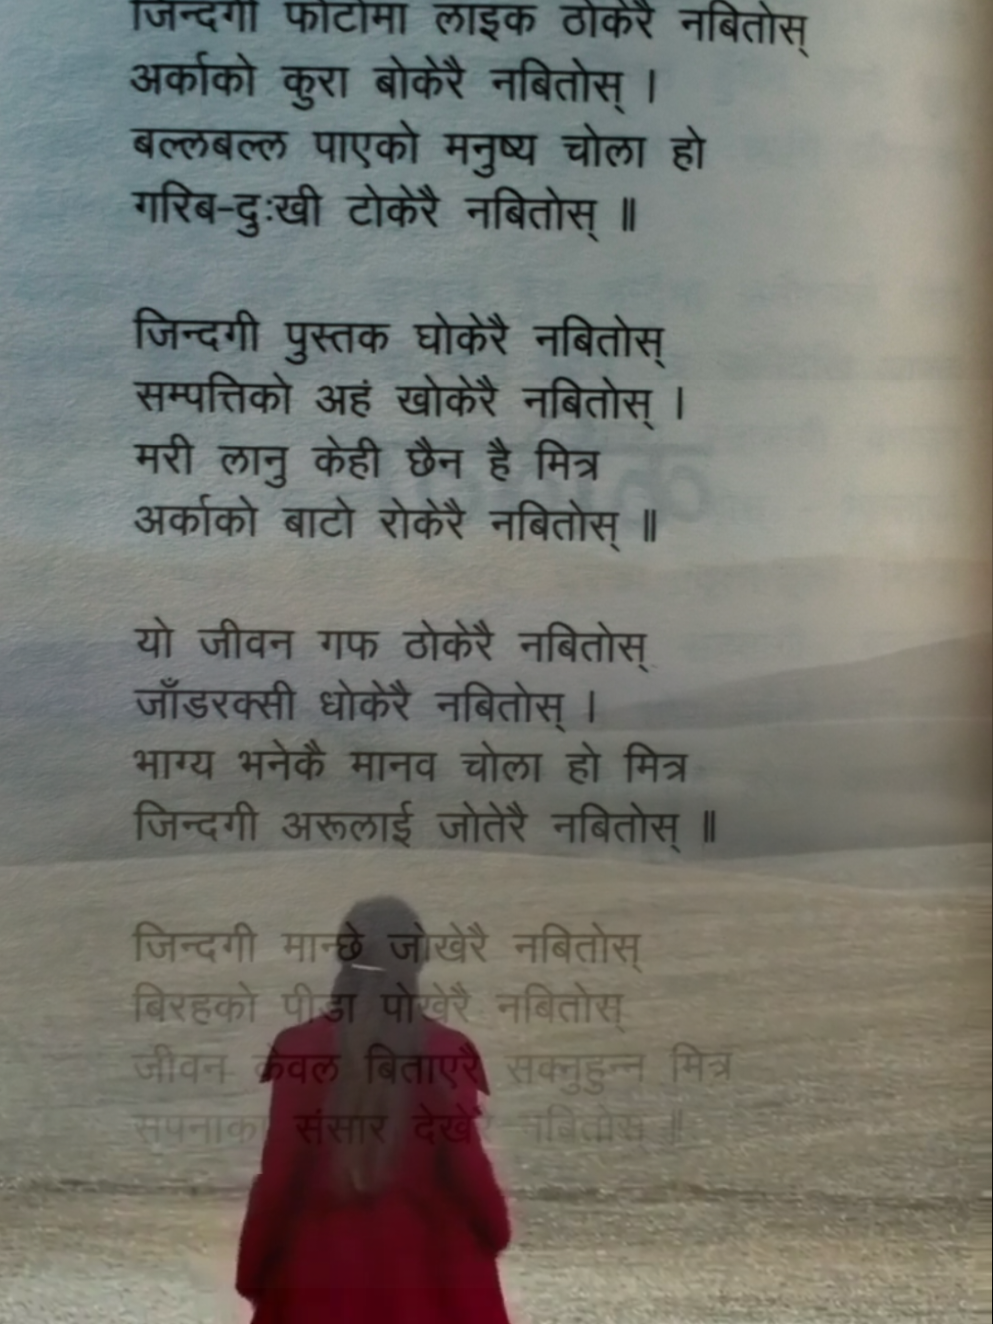 जिन्दगी फोटोमा लाइक ठोकेरै नबितोस्
अर्काको कुरा बोकेरै नबितोस् ।
बल्लबल्ल पाएको मनुष्य चोला हो
गरिब-दुःखी टोकेरै नबितोस् ॥
जिन्दगी पुस्तक घोकेरै नबितोस्
सम्पत्तिको अहं खोकेरै नबितोस् ।
मरी लानु केही छैन है मित्र
अर्काको बाटो रोकेरै नबितोस् ॥
यो जीवन गफ ठोकेरै नबितोस्
जाँडरक्सी धोकेरै नबितोस् ।
भाग्य भनेकै मानव चोला हो मित्र
जिन्दगी अरूलाई जोतेरै नबितोस् ॥
जिन्दगी मान्छे जोखेरै नबितोस्
बिरहको पीडा पोखेरै नबितोस्
जीवन केवल बिताएरै सक्नुहुन्न मित्र
सपनाको संसार देखेरै नबितोस ॥